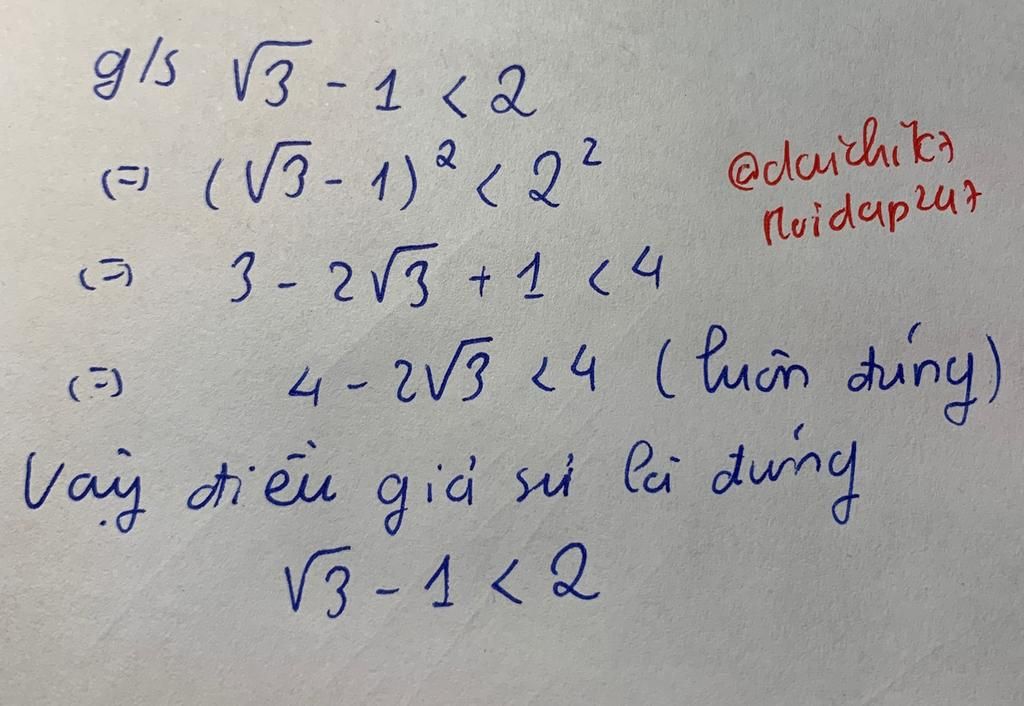 g/s √3 - 1 < 2
(=) (√3 - 1)² < 2²
(=) 3 - 2√3 + 1 < 4
(=) 4 - 2√3 < 4 (luôn đúng)
Vậy điều giả sử là đúng
√3 - 1 < 2
@daichik7